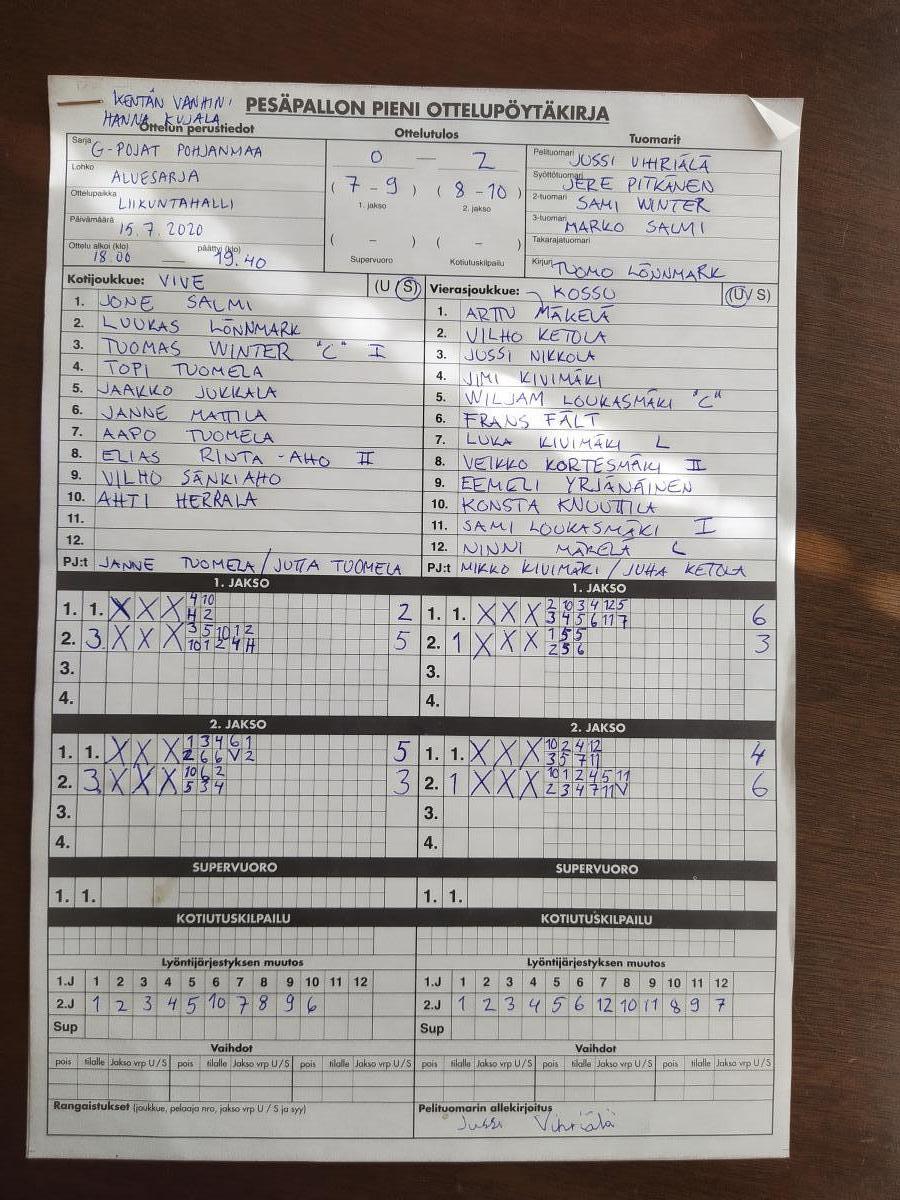 KENTÄN VANHIN:
HANNA KUJALA
PESÄPALLON PIENI OTTELUPÖYTÄKIRJA
Ottelun perustiedot
Ottelutulos
Tuomarit
Sarja G-POJAT POHJANMAA
Lohko ALUESARJA
Ottelupaikka LIIKUNTAHALLI
Päivämäärä 15.7.2020
Ottelu alkoi (klo) 18.00 — päättyi (klo) 19.40
0 — 2
(7 - 9) (8 - 10)
1. jakso 2. jakso
( - ) ( - )
Supervuoro Kotiutuskilpailu
Pelituomari JUSSI VIHRIÄLÄ
Syöttötuomari JERE PITKÄNEN
2-tuomari SAMI WINTER
3-tuomari MARKO SALMI
Takarajatuomari
Kirjuri TUOMO LÖNNMARK
Kotijoukkue: VIVE (U / S)
1. JONE SALMI
2. LUUKAS LÖNNMARK
3. TUOMAS WINTER "C" I
4. TOPI TUOMELA
5. JAAKKO JUKKALA
6. JANNE MATTILA
7. AAPO TUOMELA
8. ELIAS RINTA-AHO II
9. VILHO SÄNKIAHO
10. AHTI HERRALA
11.
12.
PJ:t JANNE TUOMELA / JUTTA TUOMELA
Vierasjoukkue: KOSSU (U / S)
1. ARTTU MÄKELÄ
2. VILHO KETOLA
3. JUSSI NIKKOLA
4. JIMI KIVIMÄKI
5. WILJAM LOUKASMÄKI "C"
6. FRANS FÄLT
7. LUKA KIVIMÄKI L
8. VEIKKO KORTESMÄKI II
9. EEMELI YRJÄNÄINEN
10. KONSTA KNUUTTILA
11. SAMI LOUKASMÄKI I
12. NINNI MÄKELÄ L
PJ:t MIKKO KIVIMÄKI / JUHA KETOLA
1. JAKSO
1. 1. X X X 4 10 2
H 2
2. 3. X X X 3 5 10 1 2 5
10 1 2 4 H
3.
4.
1. JAKSO
1. 1. X X X 2 10 3 4 12 5 6
3 4 5 6 11 7
2. 1 X X X 1 5 5 3
2 5 6
3.
4.
2. JAKSO
1. 1. X X X 1 3 4 6 1 5
2 6 6 V 2
2. 3. X X X 10 6 2 3
5 3 4
3.
4.
2. JAKSO
1. 1. X X X 10 2 4 12 4
3 5 7 11
2. 1 X X X 10 1 2 4 5 11 6
2 3 4 7 11 V
3.
4.
SUPERVUORO
1. 1.
SUPERVUORO
1. 1.
KOTIUTUSKILPAILU
KOTIUTUSKILPAILU
Lyöntijärjestyksen muutos
1.J 1 2 3 4 5 6 7 8 9 10 11 12
2.J 1 2 3 4 5 10 7 8 9 6
Sup
Lyöntijärjestyksen muutos
1.J 1 2 3 4 5 6 7 8 9 10 11 12
2.J 1 2 3 4 5 6 12 10 11 8 9 7
Sup
Vaihdot
pois tilalle Jakso vrp U / S pois tilalle Jakso vrp U / S pois tilalle Jakso vrp U / S
Vaihdot
pois tilalle Jakso vrp U / S pois tilalle Jakso vrp U / S pois tilalle Jakso vrp U / S
Rangaistukset (joukkue, pelaaja nro, jakso vrp U / S ja syy)
Pelituomarin allekirjoitus
Jussi Vihriälä